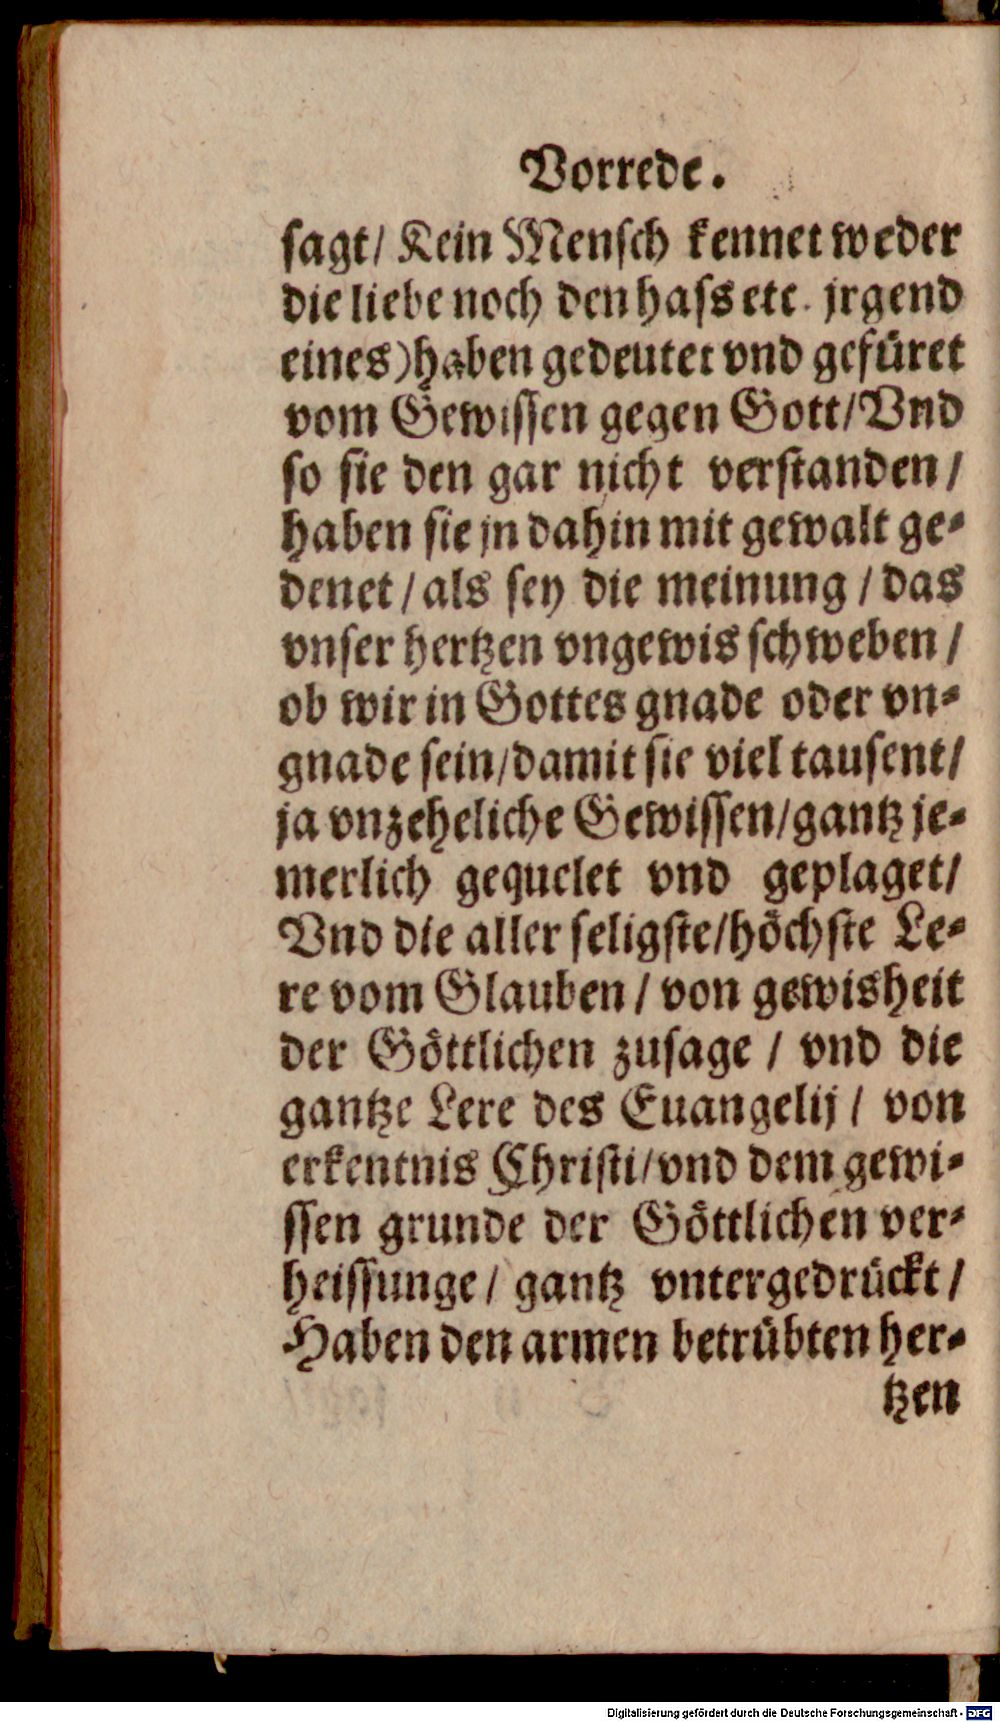 Vorrede.
sagt/ Kein Mensch kennet weder
die liebe noch den hass etc. jrgend
eines) haben gedeutet vnd gefüret
vom Gewissen gegen Gott/ Vnd
so sie den gar nicht verstanden/
haben sie jn dahin mit gewalt ge-
denet/ als sey die meinung/ das
vnser hertzen vngewis schweben/
ob wir in Gottes gnade oder vn-
gnade sein/ damit sie viel tausent/
ja vnzeheliche Gewissen/ gantz je-
merlich gequelet vnd geplaget/
Vnd die aller seligste/ höchste Le-
re vom Glauben/ von gewisheit
der Göttlichen zusage/ vnd die
gantze Lere des Euangelij/ von
erkentnis Christi/ vnd dem gewi-
ssen grunde der Göttlichen ver-
heissunge/ gantz vntergedrückt/
Haben den armen betrübten her-
tzen
Digitalisierung gefördert durch die Deutsche Forschungsgemeinschaft - DFG